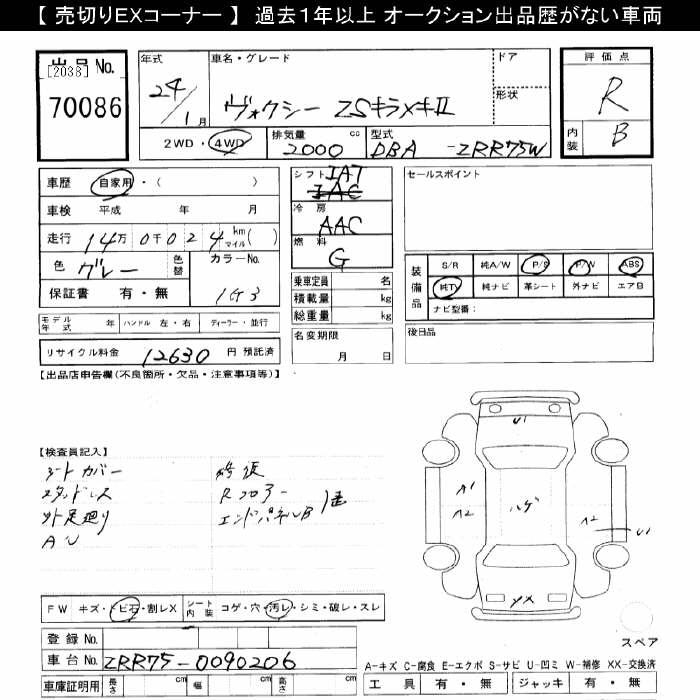 【 売切りEXコーナー 】 過去1年以上 オークション出品歴がない車両
出品No.
[2038]
70086
年式
24/1月
車名・グレード
ヴォクシー ZSキラメキⅡ
ドア
形状
評価点
R
内装
B
2WD・4WD
排気量 cc
2000
型式
DBA -ZRR75W
車歴 自家用・( )
車検 平成 年 月
走行 14万0千024 km マイル( )
色 グレー 色替 カラーNo.
保証書 有・無 1G3
シフト IAT
IAC
冷房
AAC
燃料
G
乗車定員 名
積載量 kg
総重量 kg
名変期限
月 日
セールスポイント
装備品
S/R 純A/W P/S P/W ABS
純TV 純ナビ 革シート 外ナビ エアB
ナビ型番:
後日品
モデル年式 年 ハンドル 左・右 ディーラー・並行
リサイクル料金 12630 円 預託済
【出品店申告欄(不良箇所・欠品・注意事項等)】
【検査員記入】
シートカバー
スタッドレス
外足廻り
AU
修復
Rフロアー
エンドパネルB
A1
A2
ハゲ
A2
U1
U1
YX
FW キズ・トビ石・割レX シート内装 コゲ・穴・汚レ・シミ・破レ・スレ
登録No.
車台No. ZRR75-0090206
車庫証明用 長さ cm 幅 cm 高さ cm
スペア
A-キズ C-腐食 E-エクボ S-サビ U-凹ミ W-補修 XX-交換済
工具 有・無 ジャッキ 有・無